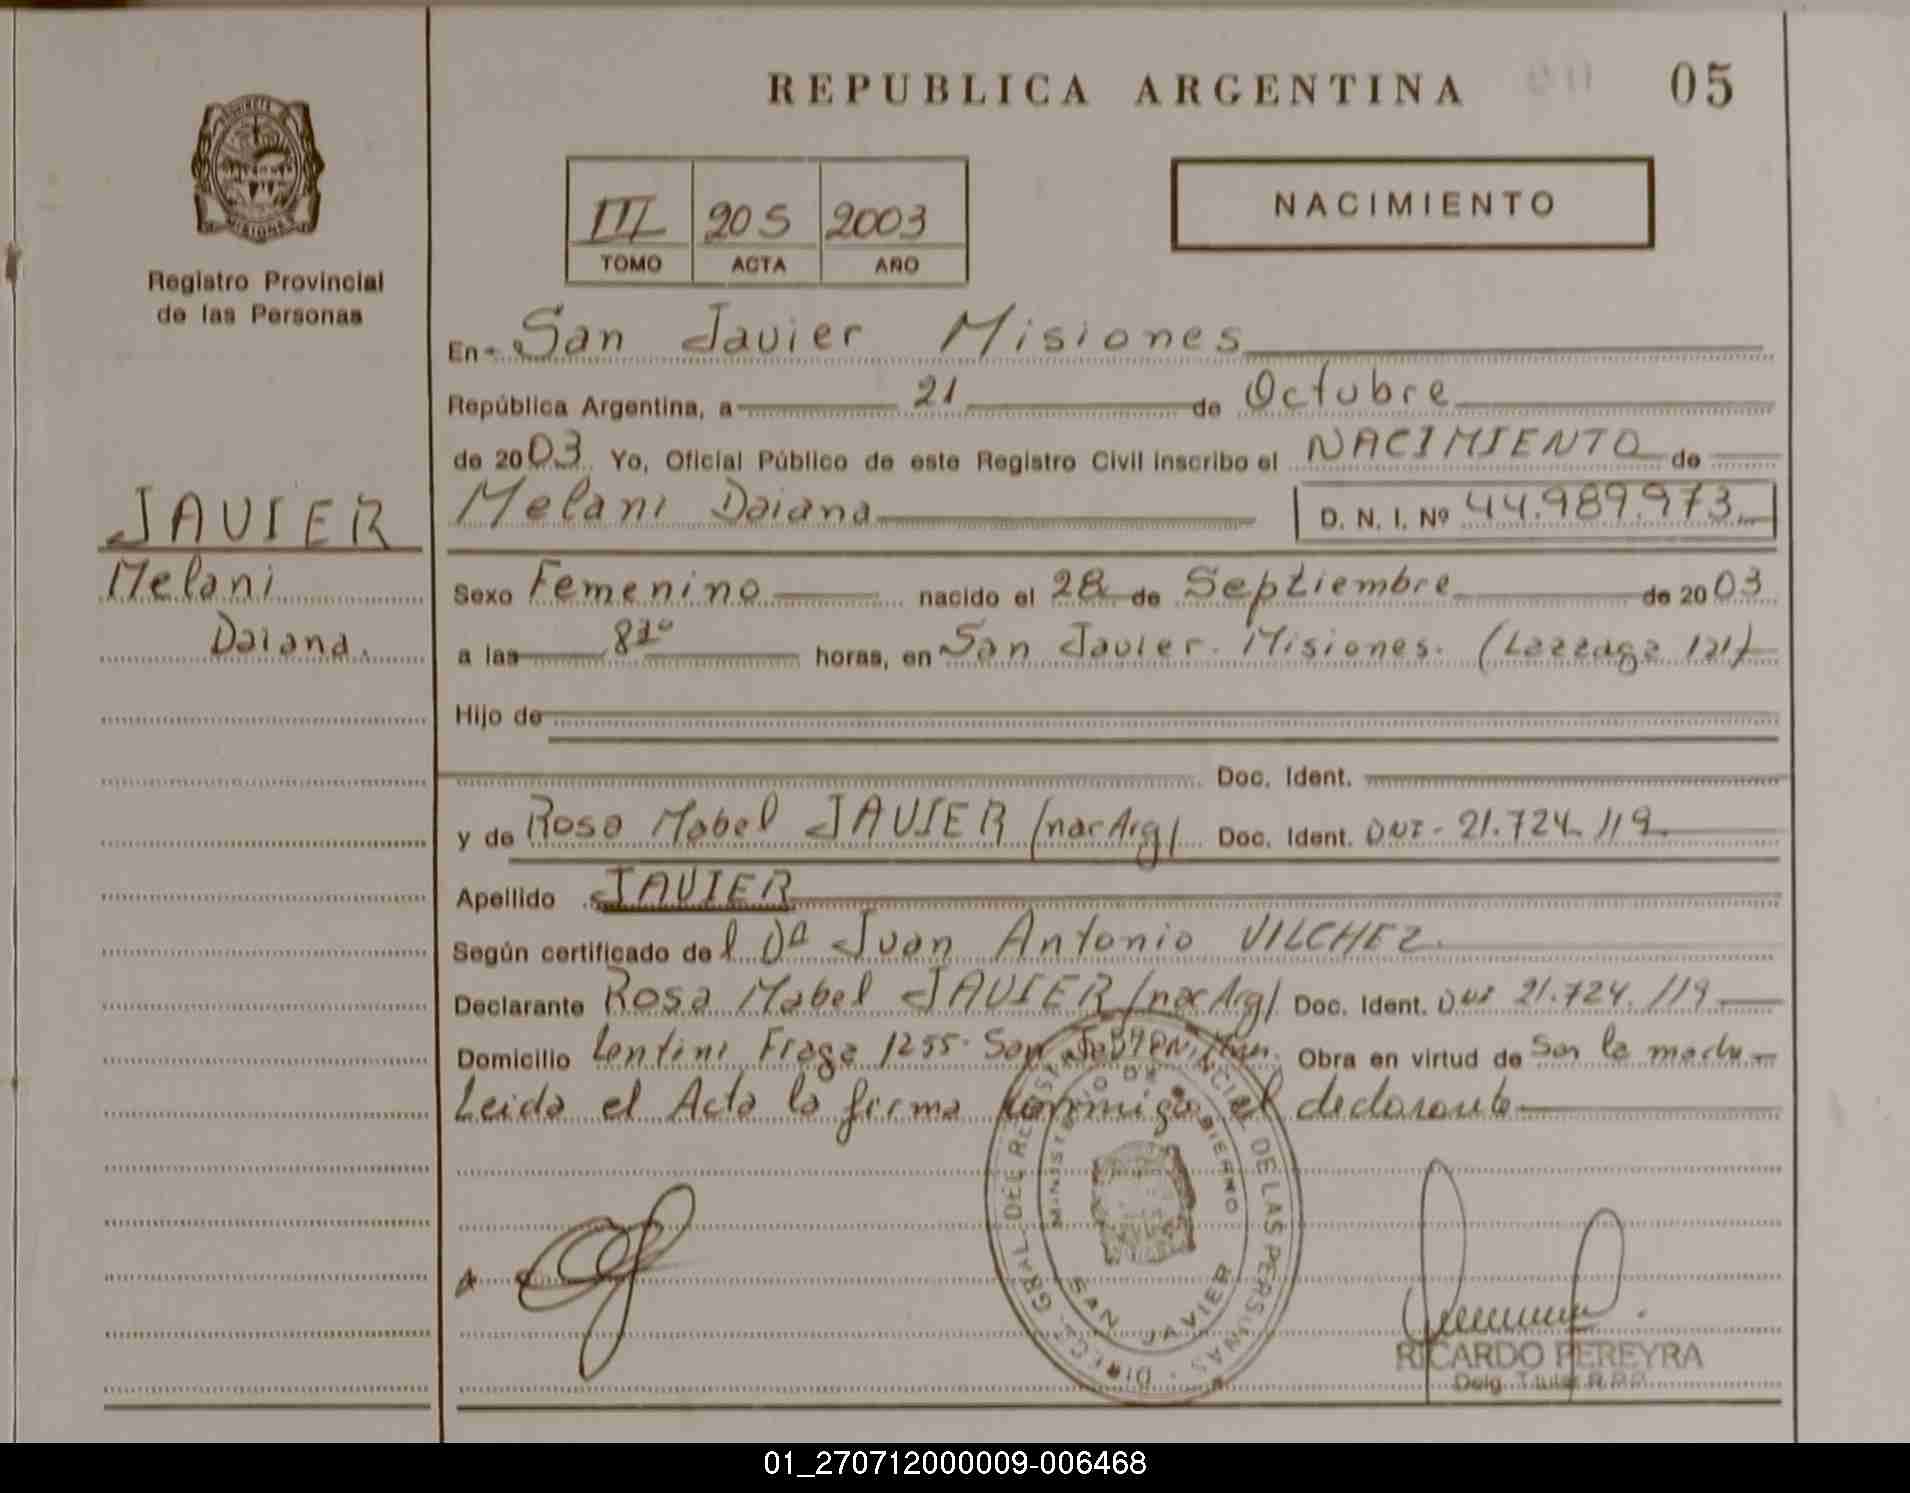 REPUBLICA ARGENTINA 05
PROVINCIA
MISIONES
Registro Provincial
de las Personas
III 205 2003
TOMO ACTA AÑO
NACIMIENTO
En San Javier Misiones
República Argentina, a 21 de Octubre
de 2003 Yo, Oficial Público de este Registro Civil inscribo el NACIMIENTO de
Melani Daiana D. N. I. Nº 44.989.973
JAVIER
Melani
Daiana.
Sexo Femenino nacido el 28 de Septiembre de 2003
a las horas, en San Javier. Misiones. 121)
Hijo de
Doc. Ident.
y de Rosa Mabel JAVIER (nac Arg) Doc. Ident. DNI - 21.724.119.
Apellido JAVIER
Según certificado de l Juan Antonio VILCHEZ.
Declarante Rosa Mabel JAVIER (nac Arg) Doc. Ident. DNI 21.724.119
Domicilio 1255. San Obra en virtud de Ser la madre
Leida el Acta la firma conmigo el declarante
DIREC. GRAL. DEL REGISTRO PROVINCIAL DE LAS PERSONAS
MINISTERIO DE GOBIERNO
SAN JAVIER
RICARDO PEREYRA
Deleg. Titular R.P.P.
01_270712000009-006468